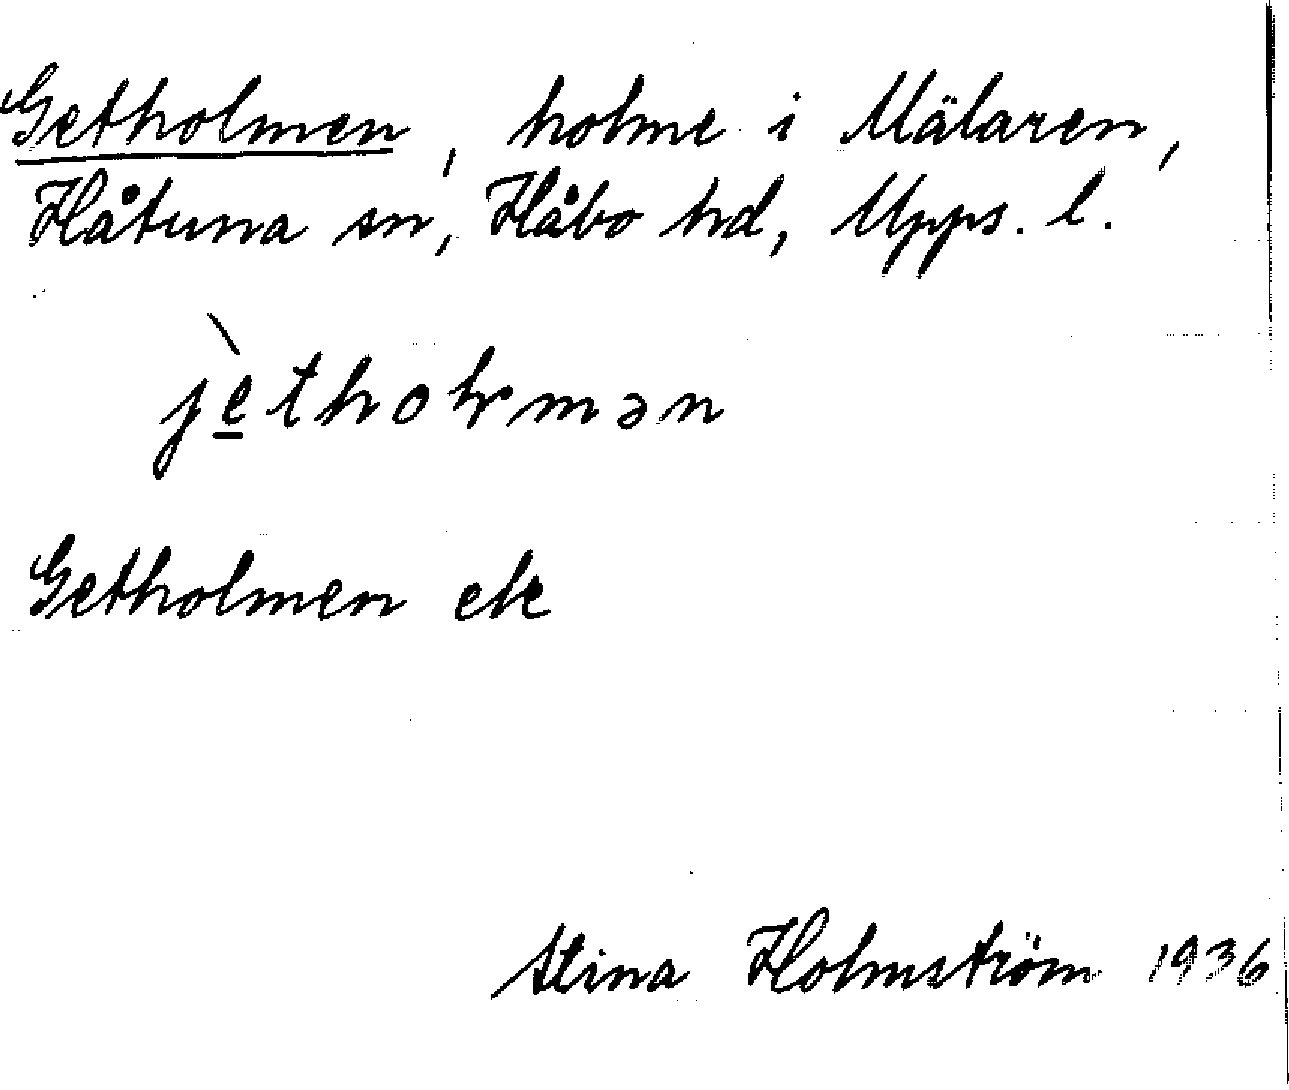 Getholmen, holme i Mälaren,
Håtuna sn, Håbo hd, Upps. l.
Getholmen ek
Stina Holmström 1936